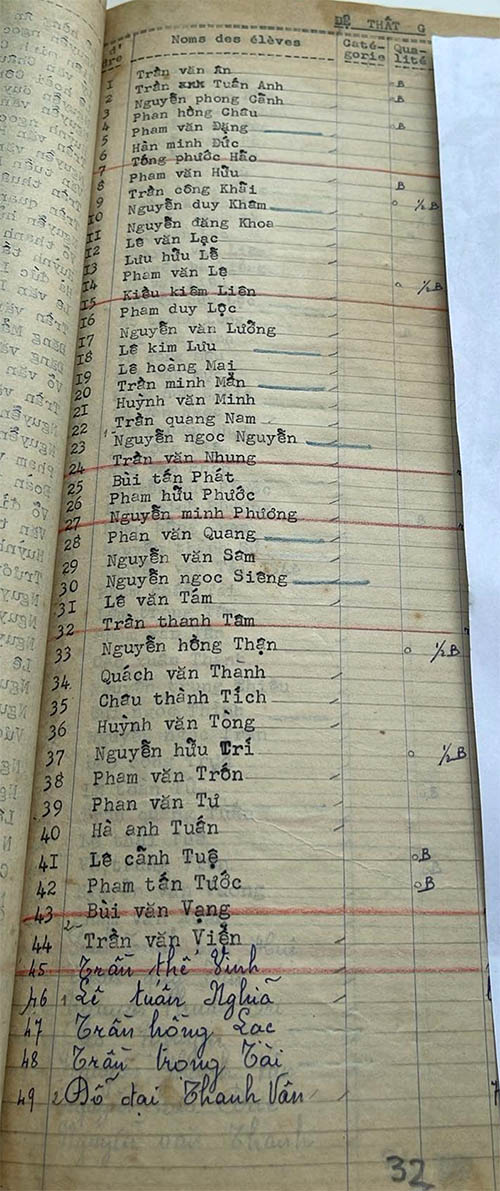 ĐỆ THẤT G
d'
Noms des élèves
Caté-
gorie
Qua-
lité
1 Trần văn Ân
2 Trần Tuấn Anh B
3 Nguyễn phong Cảnh B
4 Phan hồng Châu
5 Phạm văn Đặng B
6 Hàn minh Đức
7 Tống phước Hào
8 Phạm văn Hữu
9 Trần công Khải B
10 Nguyễn duy Khâm ½ B
11 Nguyễn đăng Khoa
12 Lê văn Lạc
13 Lưu hữu Lễ
14 Phạm văn Lê
15 Kiều kiêm Liên ½ B
16 Phạm duy Lộc
17 Nguyễn văn Lưỡng
18 Lê kim Lưu
19 Lê hoàng Mai
20 Trần minh Mẫn
21 Huỳnh văn Minh
22 Trần quang Nam
23 Nguyễn ngọc Nguyên
24 Trần văn Nhung
25 Bùi tấn Phát
26 Phạm hữu Phước
27 Nguyễn minh Phương
28 Phan văn Quang
29 Nguyễn văn Sâm
30 Nguyễn ngọc Siêng
31 Lê văn Tám
32 Trần thanh Tâm
33 Nguyễn hồng Thận ½ B
34 Quách văn Thành
35 Châu thành Tích
36 Huỳnh văn Tòng
37 Nguyễn hữu Trí ½ B
38 Phạm văn Trốn
39 Phan văn Tư
40 Hà anh Tuấn
41 Lê cảnh Tuệ B
42 Phạm tấn Tước B
43 Bùi văn Vạng
44 Trần văn Viễn
45 Trần thế Vinh
46 Lê tuấn Nghĩa
47 Trần hồng Lạc
48 Trần trọng Tài
49 Đỗ đại Thanh Vân
32